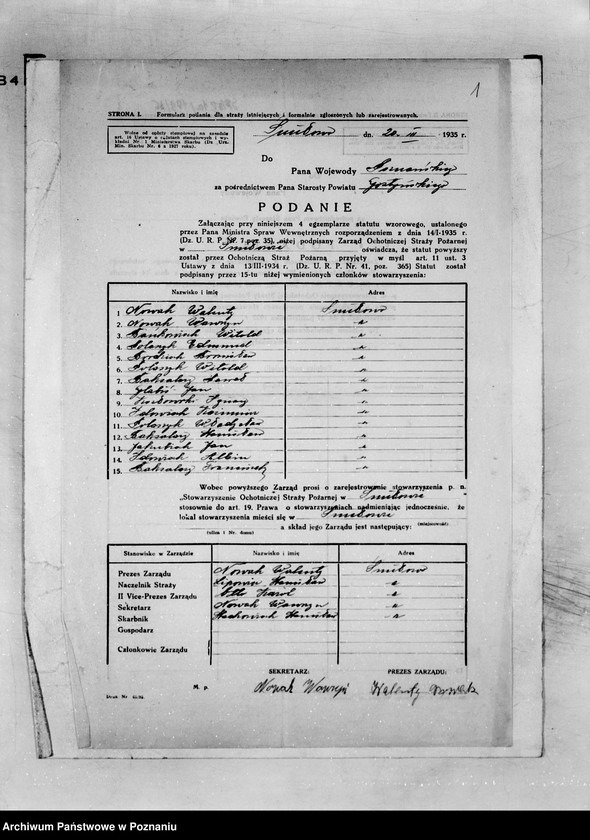 1
STRONA I. Formularz podania dla straży istniejących i formalnie zgłoszonych lub zarejestrowanych.
Wolne od opłaty stemplowej na zasadzie
art. 16 Ustawy o opłatach stemplowych i wy-
kładni Nr 1 Ministerstwa Skarbu (Dz. Urz.
Min. Skarbu Nr. 6 z 1927 roku).
Smiłowo dn. 20. III 1935 r.
Do
Pana Wojewody Poznańskiego
za pośrednictwem Pana Starosty Powiatu Gostyńskiego
PODANIE
Załączając przy niniejszem 4 egzemplarze statutu wzorowego, ustalonego
przez Pana Ministra Spraw Wewnętrznych rozporządzeniem z dnia 14/I-1935 r.
(Dz. U. R. P. Nr. 7 poz. 35), niżej podpisany Zarząd Ochotniczej Straży Pożarnej
w oświadcza, że statut powyższy
został przez Ochotniczą Straż Pożarną przyjęty w myśl art. 11 ust. 3
Ustawy z dnia 13/III-1934 r. (Dz. U. R. P. Nr. 41, poz. 365) Statut został
podpisany przez 15-tu niżej wymienionych członków stowarzyszenia:
Nazwisko i imię Adres
1 Nowak Walenty Smiłowo
2. Nowak Wawrzyn
3. Witold
4. Polaszyk Edmund
5. Stanisław
6. Polaszyk Witold
7. Baksalary
8. Jan
9. Ignacy
10. Zdowiak Kazimierz
11. Polaszyk Władysław
12. Baksalary Stanisław
13. Jakubiak Jan
14. Zdowiak Albin
15. Baksalary Franciszek
Wobec powyższego Zarząd prosi o zarejestrowanie stowarzyszenia p. n.
„Stowarzyszenie Ochotniczej Straży Pożarnej w
stosownie do art. 19. Prawa o stowarzyszeniach nadmieniając jednocześnie, że
lokal stowarzyszenia mieści się w
(miejscowość)
a skład jego Zarządu jest następujący:
(ulica i Nr. domu)
Stanowisko w Zarządzie Nazwisko i imię Adres
Prezes Zarządu Nowak Walenty Smiłowo
Naczelnik Straży Stanisław
II Vice-Prezes Zarządu Otto Karol
Sekretarz Nowak Wawrzyn
Skarbnik Stachowiak Stanisław
Gospodarz
Członkowie Zarządu
SEKRETARZ: PREZES ZARZĄDU:
M. p. Nowak Wawrzyn Walenty Nowak
Archiwum Państwowe w Poznaniu